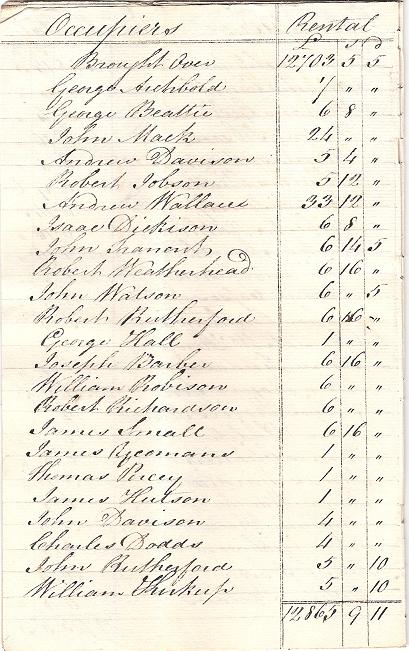 Occupiers Rental
£ S d
Brought Over 12703 5 5
George Archbold 7 " "
George Beattie 6 8 "
John Mack 24 " "
Andrew Davison 5 4 "
Robert Jobson 5 12 "
Andrew Wallace 33 12 "
Isaac Dickison 6 8 "
John Tranent 6 14 5
Robert Weatherhead 6 16 "
John Watson 6 " 5
Robert Rutherford 6 16 "
George Hall 1 " "
Joseph Barber 6 16 "
William Robison 6 " "
Robert Richardson 6 " "
James Small 6 16 "
James Yeomans 1 " "
Thomas Percy 1 " "
James Hutson 1 " "
John Davison 4 " "
Charles Dodds 4 " "
John Rutherford 5 " 10
William Kirkup 5 " 10
12865 9 11